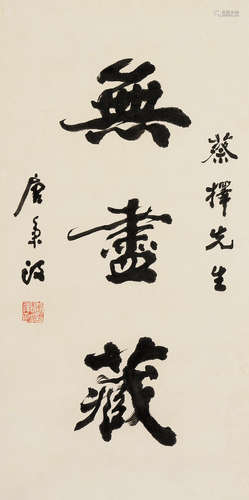 蔡擇先生
無盡藏
唐秉